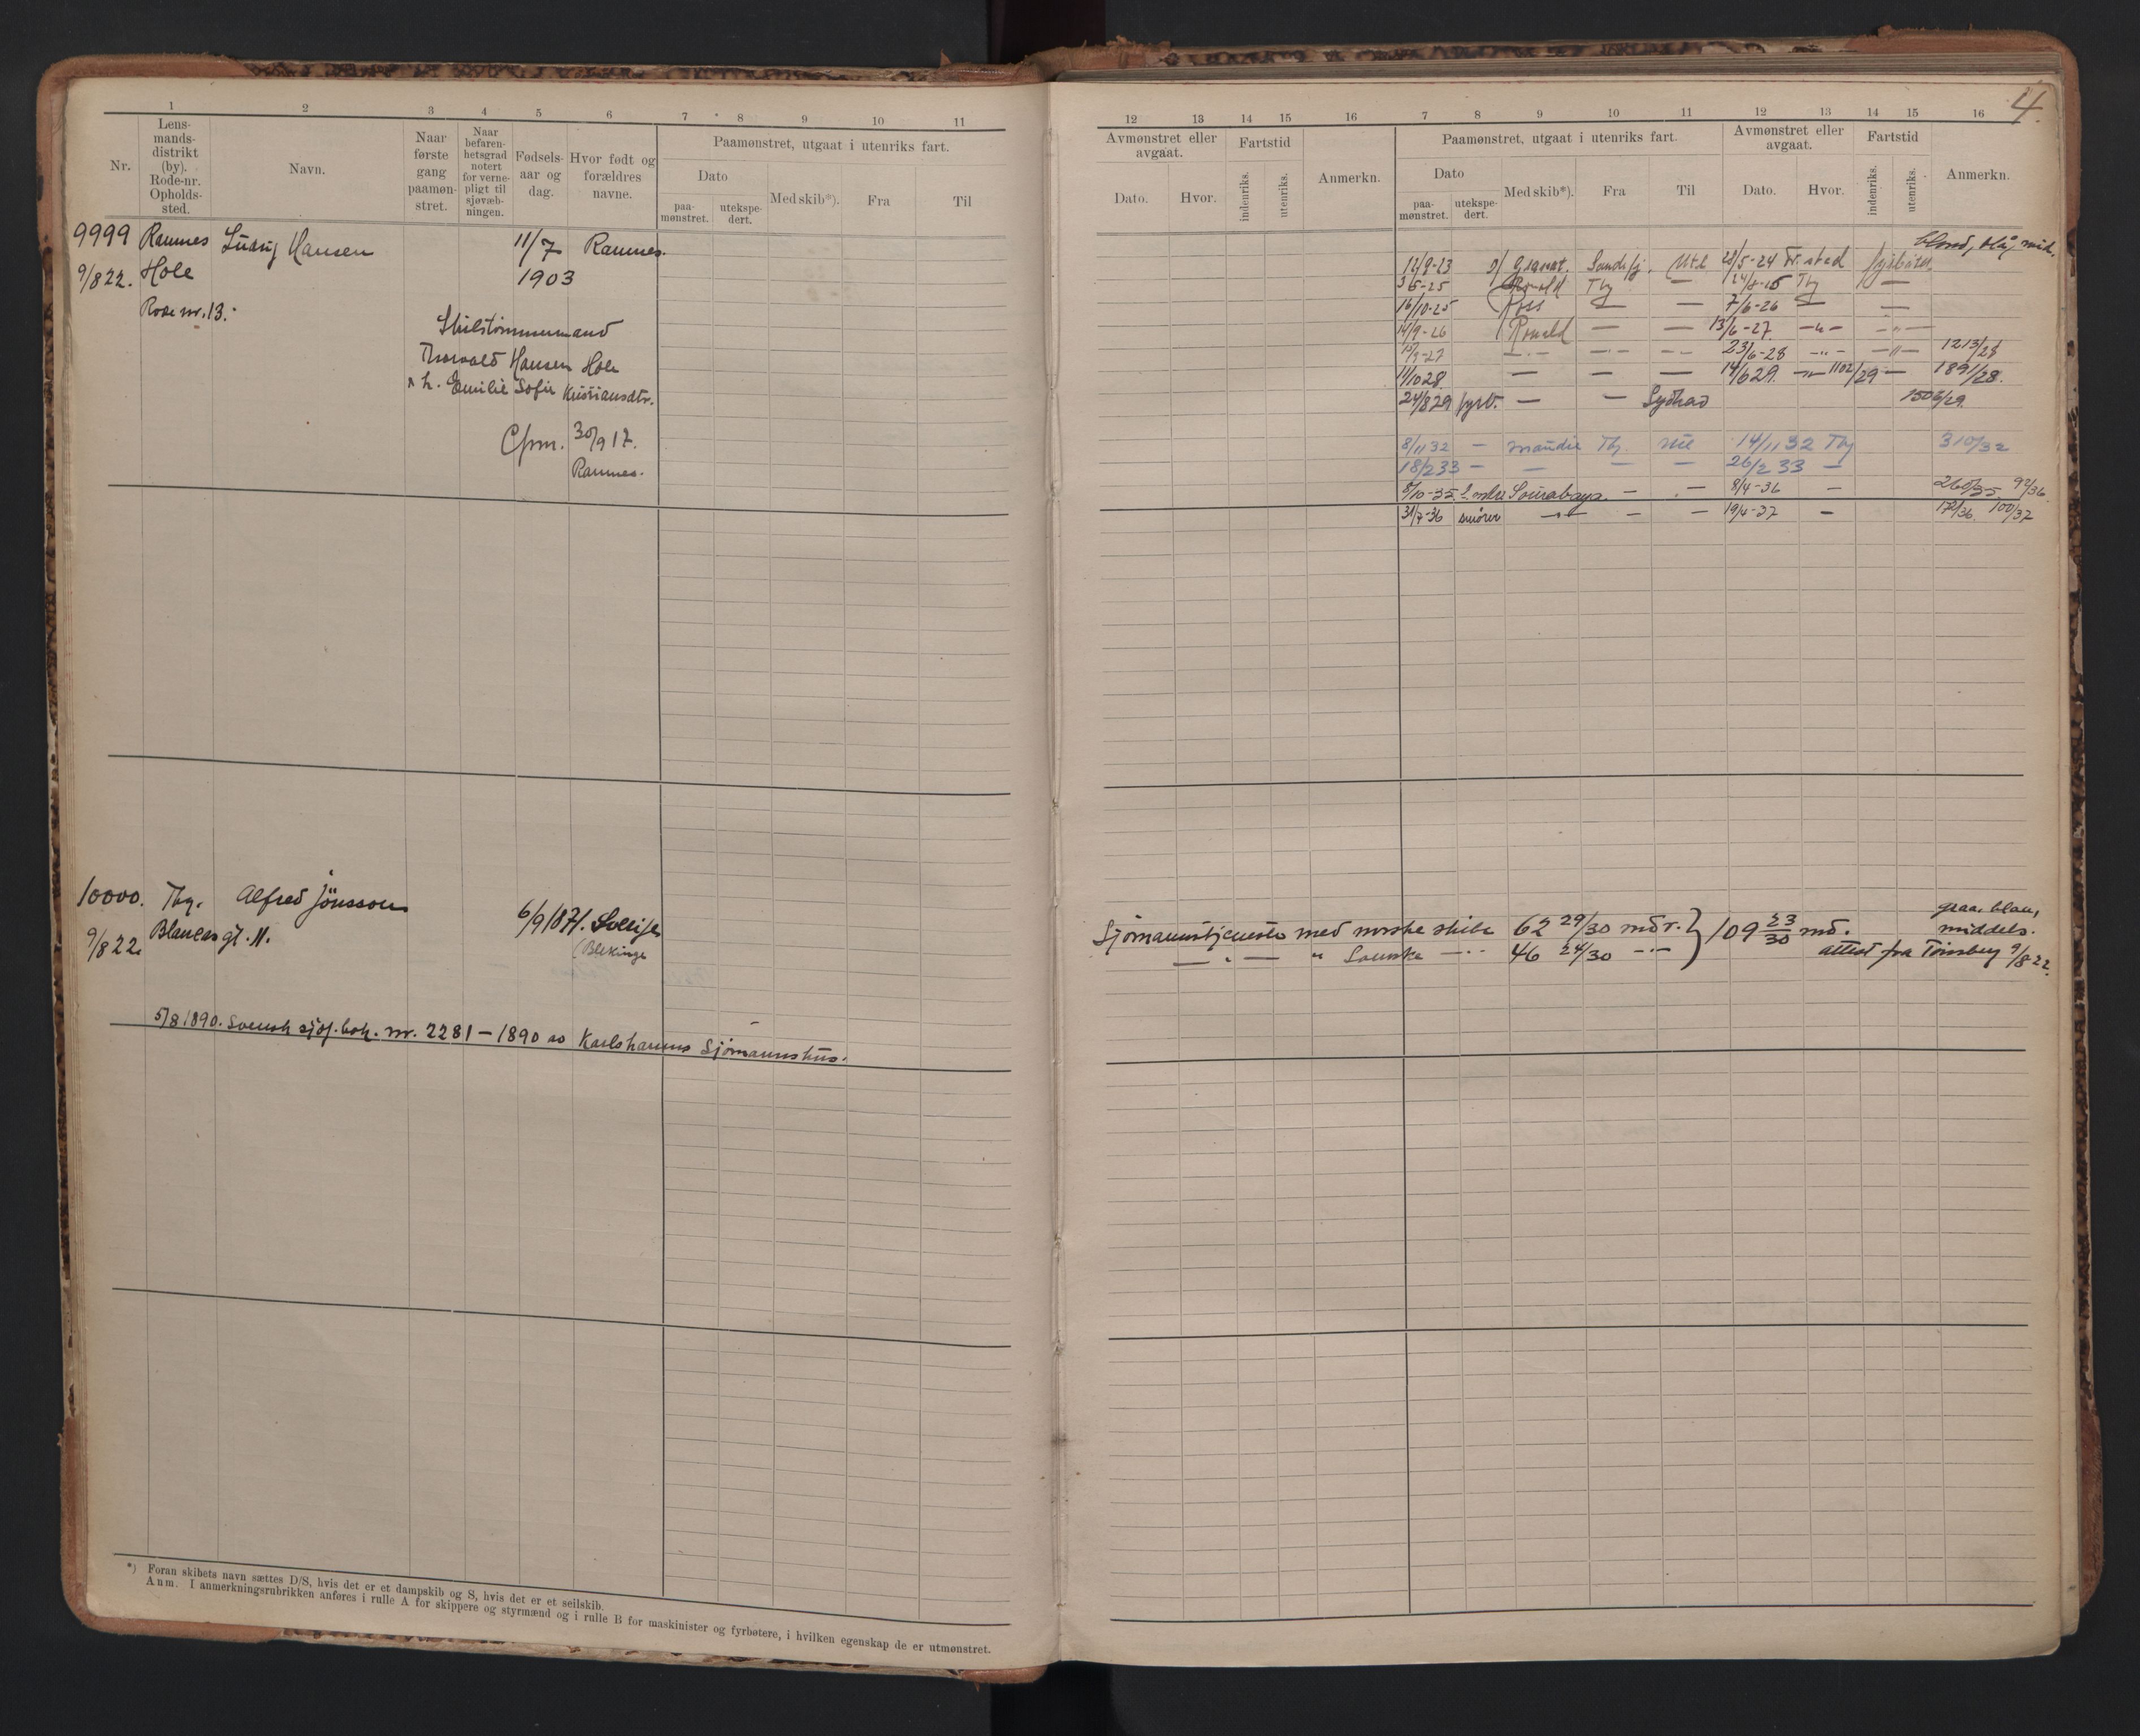 4.
1 2 3 4 5 6 7 8 9 10 11
Nr. Lensmandsdistrikt (by). Rode-nr. Opholdssted. Navn. Naar første gang paamønstret. Naar befarenhetsgrad notert for vernepligt til sjøvæbningen. Fødselsaar og dag. Hvor født og forældres navne. Paamønstret, utgaat i utenriks fart.
Dato Med skib*). Fra Til
paamønstret. utekspedert.
9999 Ramnes Ludvig Hansen 11/7 Ramnes.
9/8 22. Hole 1903
Rode nr. 13.
Thorvald Hansen Hole
h. Emilie Sofie Kristiansdtr.
Cfrm. 30/9 17.
Ramnes.
10000. Tbg. Alfred Jönsson 6/9 1871.
9/8 22. gt. 11. (Blekinge
5/8 1890. Svensk sjöf. bok. nr. 2281 – 1890 av Karlshamns Sjömannshus.
*) Foran skibets navn sættes D/S, hvis det er et dampskib og S, hvis det er et seilskib.
Anm. I anmerkningsrubrikken anføres i rulle A for skippere og styrmænd og i rulle B for maskinister og fyrbøtere, i hvilken egenskap de er utmønstret.
12 13 14 15 16 7 8 9 10 11 12 13 14 15 16
Avmønstret eller avgaat. Fartstid Anmerkn. Paamønstret, utgaat i utenriks fart. Avmønstret eller avgaat. Fartstid Anmerkn.
Dato. Hvor. indenriks. utenriks. Dato Med skib*). Fra Til Dato. Hvor. indenriks. utenriks.
paamønstret. utekspedert.
blond, blå, mid.
12/9-23 Granat. Sandefj. Utl /5-24 Fr.sted fyrbøter
3/5-25 Ronald Tbg — Tbg —
16/10-25 Ross — — 7/6-26 — —
14/9-26 Ronald — — 13/6-27. –"– –"–
–"– –"– –"– 23/6-28 –"– –"– 1213/28
11/10 28 — — — 14/6 29. –"– 1102/29 — 1891/28.
24/8 29 fyrb. — — Sydhav 1506/29
8/11 32 — Maudie Tbg. 14/11 32 Tbg 310/32
18/2 33 — — — — 26/2 33 —
8/10-35 Sourabaya. — — 8/4-36 — 92/36
31/7-36 smører –"– — — 19/4-37 — 100/37
Sjømannstjeneste med norske skibe 62 29/30 mdr. } 109 23/30 md.
— " — " Svenske –"– 46 24/30 –"–
graa, blaa,
middels.
attest fra Tønsberg 9/8-22.